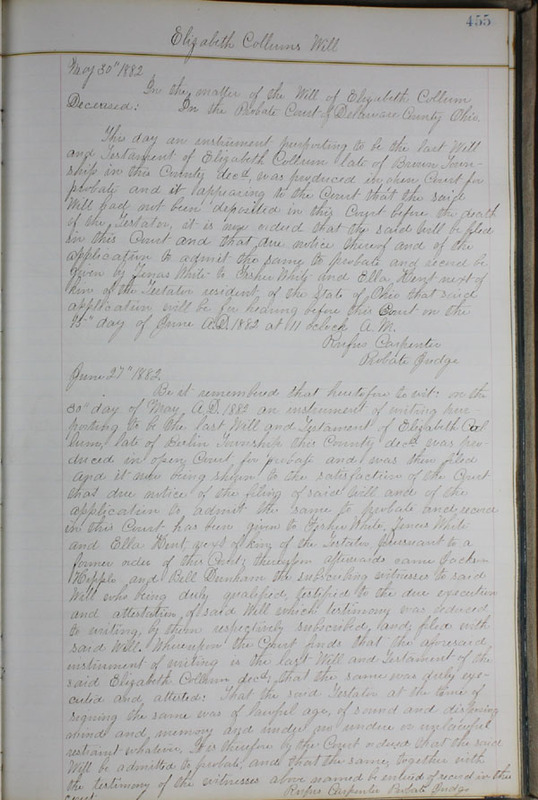 455
Elizabeth Collums Will
May 30th 1882
In the matter of the Will of Elizabeth Collum
Deceased: In the Probate Court of Delaware County Ohio
This day an instrument purporting to be the last Will
and Testament of Elizabeth Collum late of Brown Town-
ship in this County decd, was produced in open Court for
probate and it appearing to the Court that the said
Will had not been deposited in this Court before the death
of the Testator, it is now ordered that the said Will be filed
in this Court and that due notice thereof and of the
application to admit the same to probate and record be
given by White to White and Ella Kent next of
kin of the Testator resident of the State of Ohio that said
application will be for hearing before this Court on the
day of June A.D. 1882 at 11 oclock A.M.
Rufus Carpenter
Probate Judge
June 27th 1882
Be it remembered that heretofore to wit: on the
30th day of May, A.D. 1882 an instrument of writing pur
porting to be the last Will and Testament of Elizabeth Col
lum, late of Berlin Township this County decd was pro
duced in open Court for probate and was then filed
And it now being shown to the satisfaction of the Court
that due notice of the filing of said Will and of the
application to admit the same to probate and record
in this Court has been given to White, White
and Ella Kent, next of king of the Testator pursuant to a
former order of this Court; thereupon afterwards came Jackson
Hipple and Bell Dunham the subscribing witnesses to said
Will who being duly qualified, testified to the due execution
and attestation, of said Will which testimony was reduced
to writing, by them respectively subscribed, and filed with
said Will. Whereupon the Court finds that the aforesaid
instrument of writing is the last Will and Testament of the
said Elizabeth Collum decd, that the same was duly exe-
cuted and attested: That the said Testator at the time of
signing the same was of lawful age, of sound and disposing
mind and memory and under no undue or unlawful
restraint whatever. It is therefore by the Court ordered that the said
Will be admitted to probate, and that the same, together with
the testimony of the witnesses above named be entered of record in this
Court
Rufus Carpenter Probate Judge